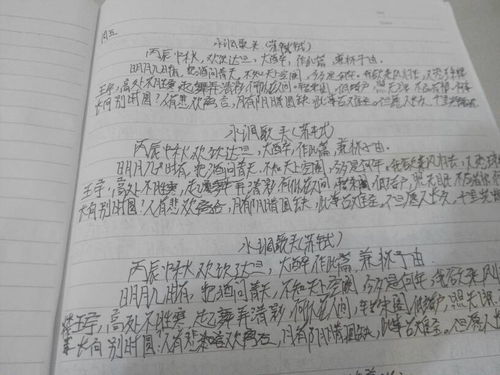 水调歌头(苏轼)
丙辰中秋,欢饮达旦,大醉,作此篇,兼怀子由。
明月几时有,把酒问青天,不知天上宫阙,今夕是何年。我欲乘风归去,又恐琼楼
玉宇,高处不胜寒,起舞弄清影,何似在人间。转朱阁,低绮户,照无眠,不应有恨,何事
长向别时圆?人有悲欢离合,月有阴晴圆缺,此事古难全。但愿人长久,千里共婵娟。
水调歌头(苏轼)
丙辰中秋,欢饮达旦,大醉,作此篇,兼怀子由。
明月几时有,把酒问青天,不知天上宫阙,今夕是何年。我欲乘风归去,又恐琼
玉宇,高处不胜寒,起舞弄清影,何似在人间,转朱阁,低绮户,照无眠,不应有恨
长向别时圆?人有悲欢离合,月有阴晴圆缺,此事古难全。但愿人长久,千里共
水调歌头(苏轼)
丙辰中秋,欢饮达旦,大醉,作此篇,兼怀子由。
明月几时有,把酒问青天,不知天上宫阙,今夕是何年,我欲乘风
玉宇,高处不胜寒,起舞弄清影,何似在人间,转朱阁,低绮户,照无眠
长向别时圆?人有悲欢离合,月有阴晴圆缺,此事古难全。但愿人